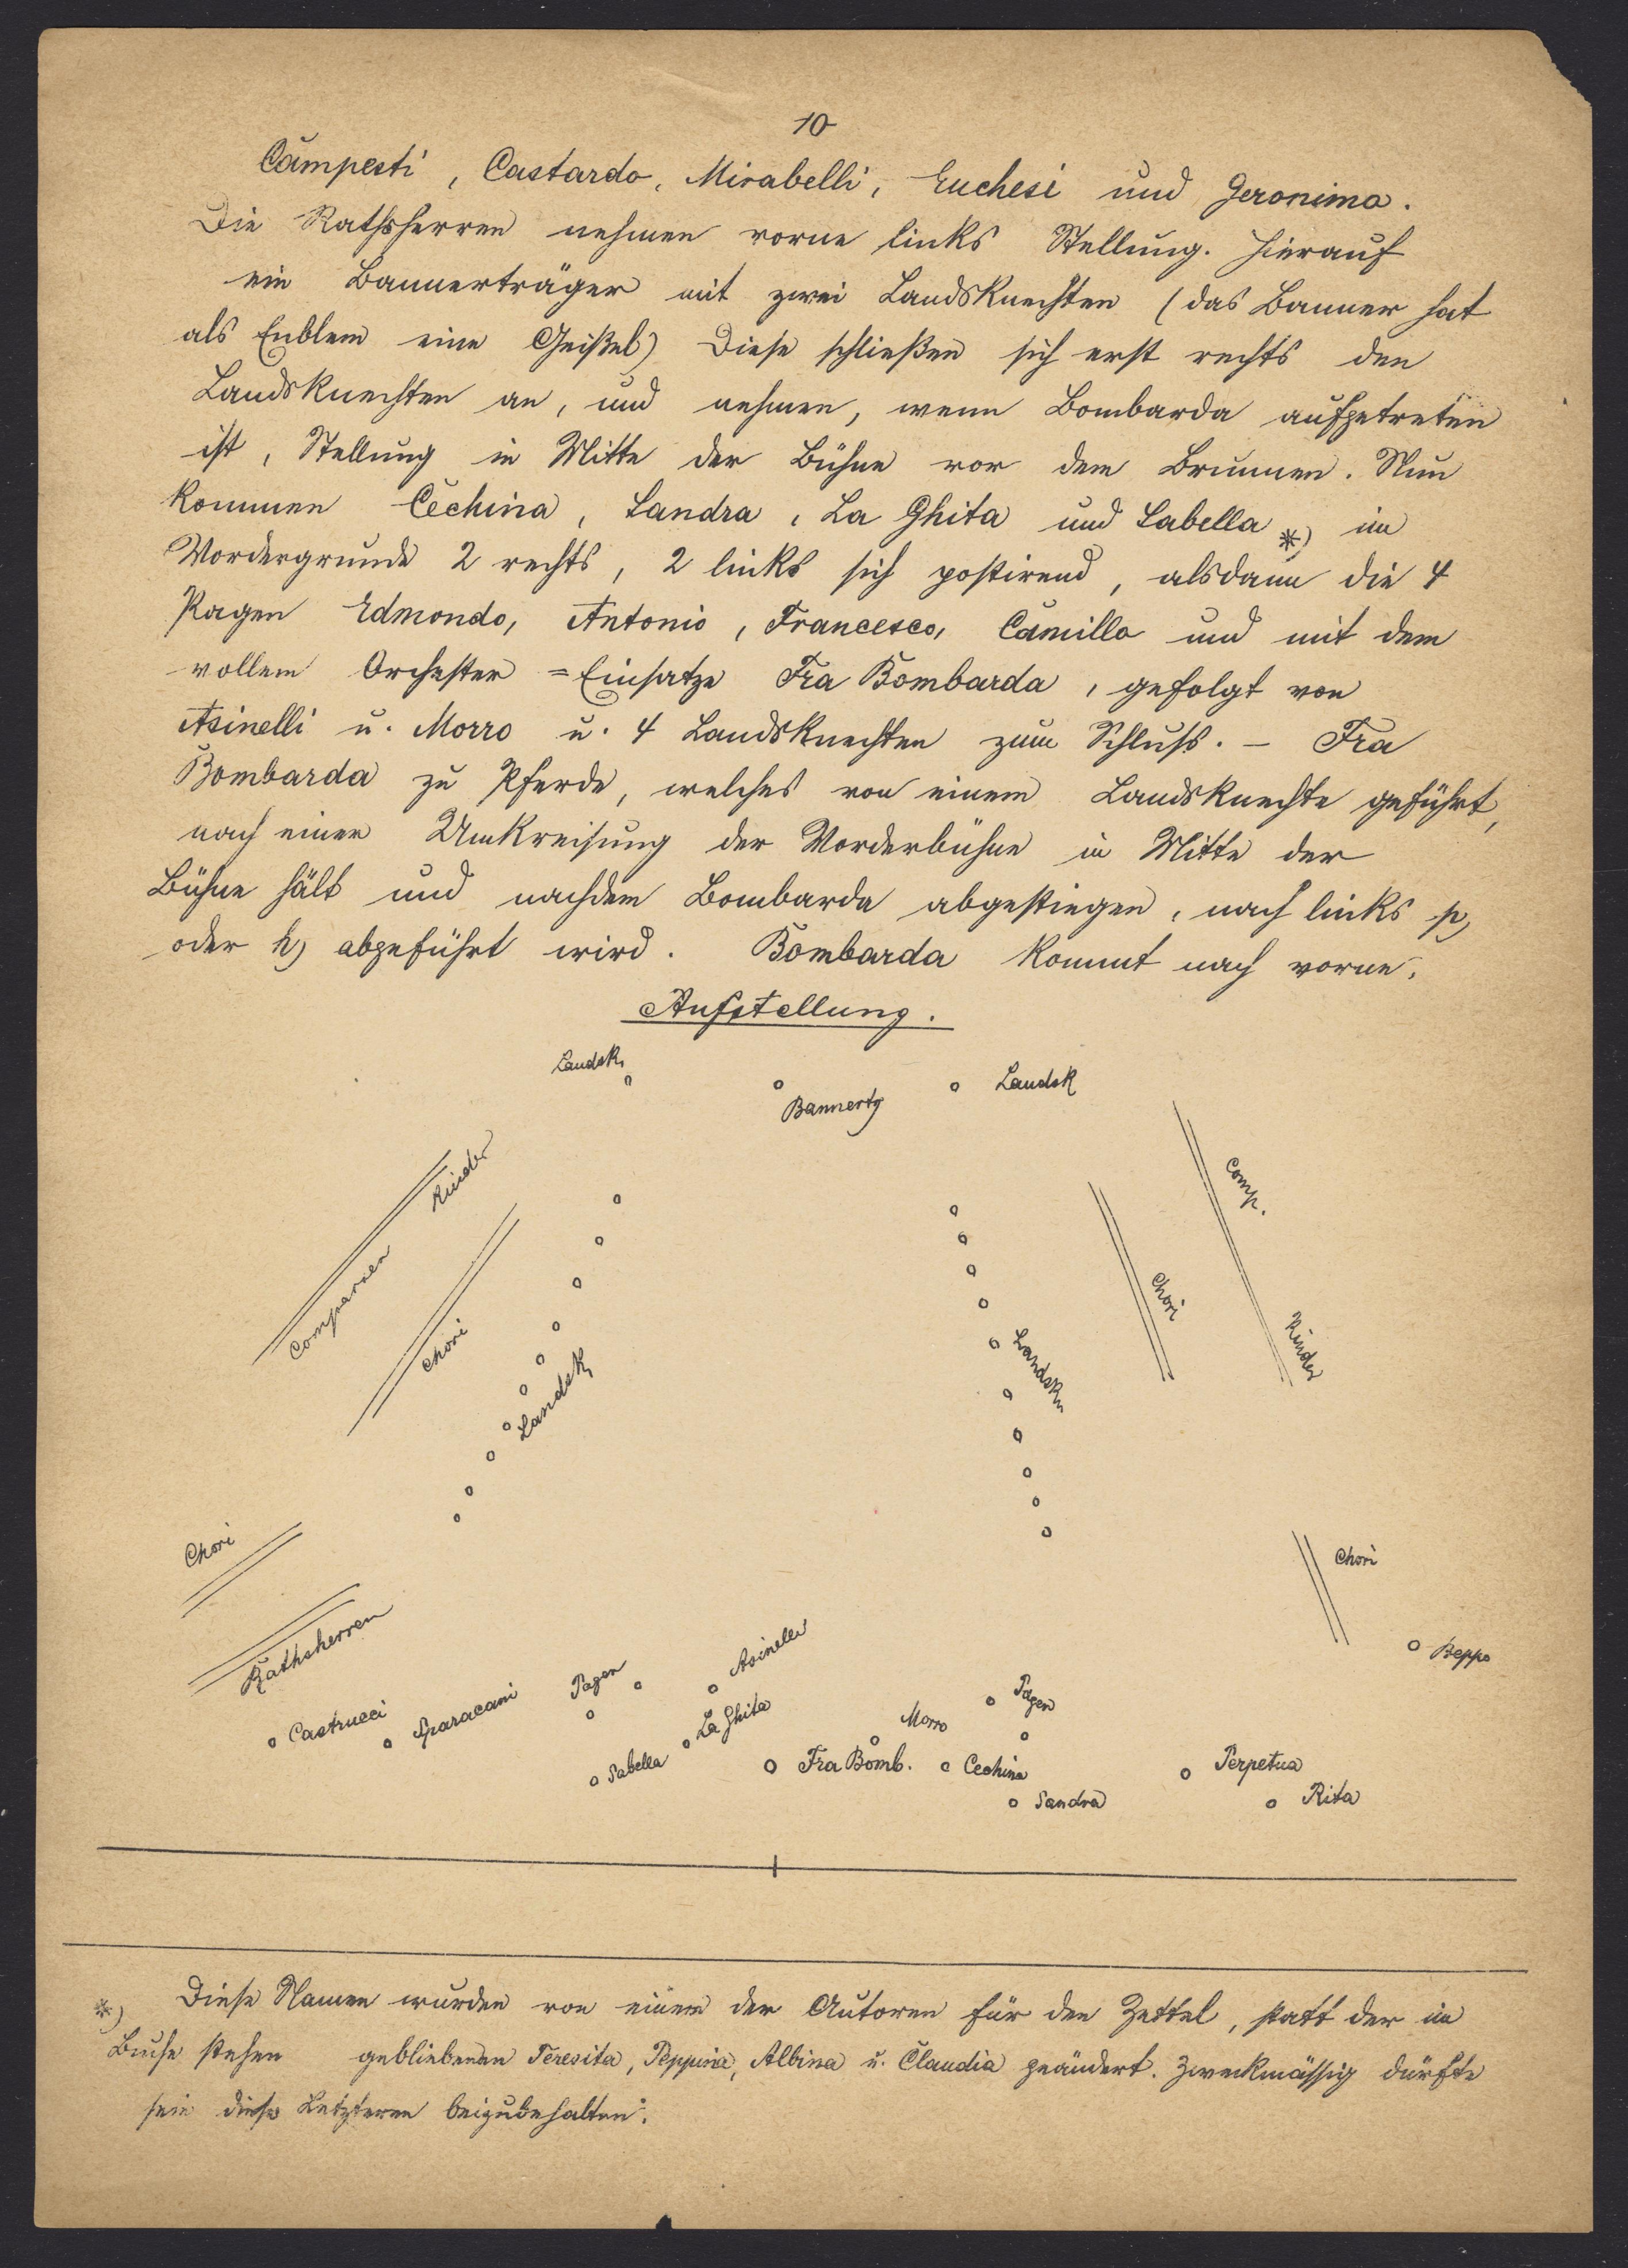 10
Campesti, Castardo, Mirabelli, Euchesi und Geronimo.
Die Rathsherren nehmen vorne links Stellung. Hierauf
ein Bannerträger mit zwei Landsknechten (das Banner hat
als Enblem eine Geißel) Diese schließen sich erst rechts den
Landsknechten an, und nehmen, wenn Bombarda aufgetreten
ist, Stellung in Mitte der Bühne vor dem Brunnen. Nun
kommen Cechina, Sandra, La Ghita und Sabella *) im
Vordergrunde 2 rechts, 2 links sich postirend, alsdann die 4
Pagen Edmondo, Antonio, Francesco, Camillo und mit dem
vollem Orchester=Einsatze Fra Bombarda, gefolgt von
Asinelli u. Morro u. 4 Landsknechten zum Schluß. – Fra
Bombarda zu Pferde, welches von einem Landsknechte geführt,
nach einer Umkreisung der Vorderbühne in Mitte der
Bühne hält und nachdem Bombarda abgestiegen, nach links p)
oder h) abgeführt wird. Bombarda kommt nach vorne.
Aufstellung.
Landsk.
Bannertg
Landsk
Comparsen Kinder
Chori
Landsk
Landskn
Chori
Comp.
Kinder
Chori
Rathsherren
Chori
Beppo
Castrucci
Sparacani
Pagen
Asinelli
Sabella
La Ghita
Morro
Pagen
Fra Bomb.
Cechina
Sandra
Perpetua
Rita
*) Diese Namen wurden von einem der Autoren für den Zettel, statt der im
Buche stehen gebliebenen Teresita, Peppina, Albina u. Claudia geändert. Zweckmässig dürfte
sein diese Letzteren beizubehalten.